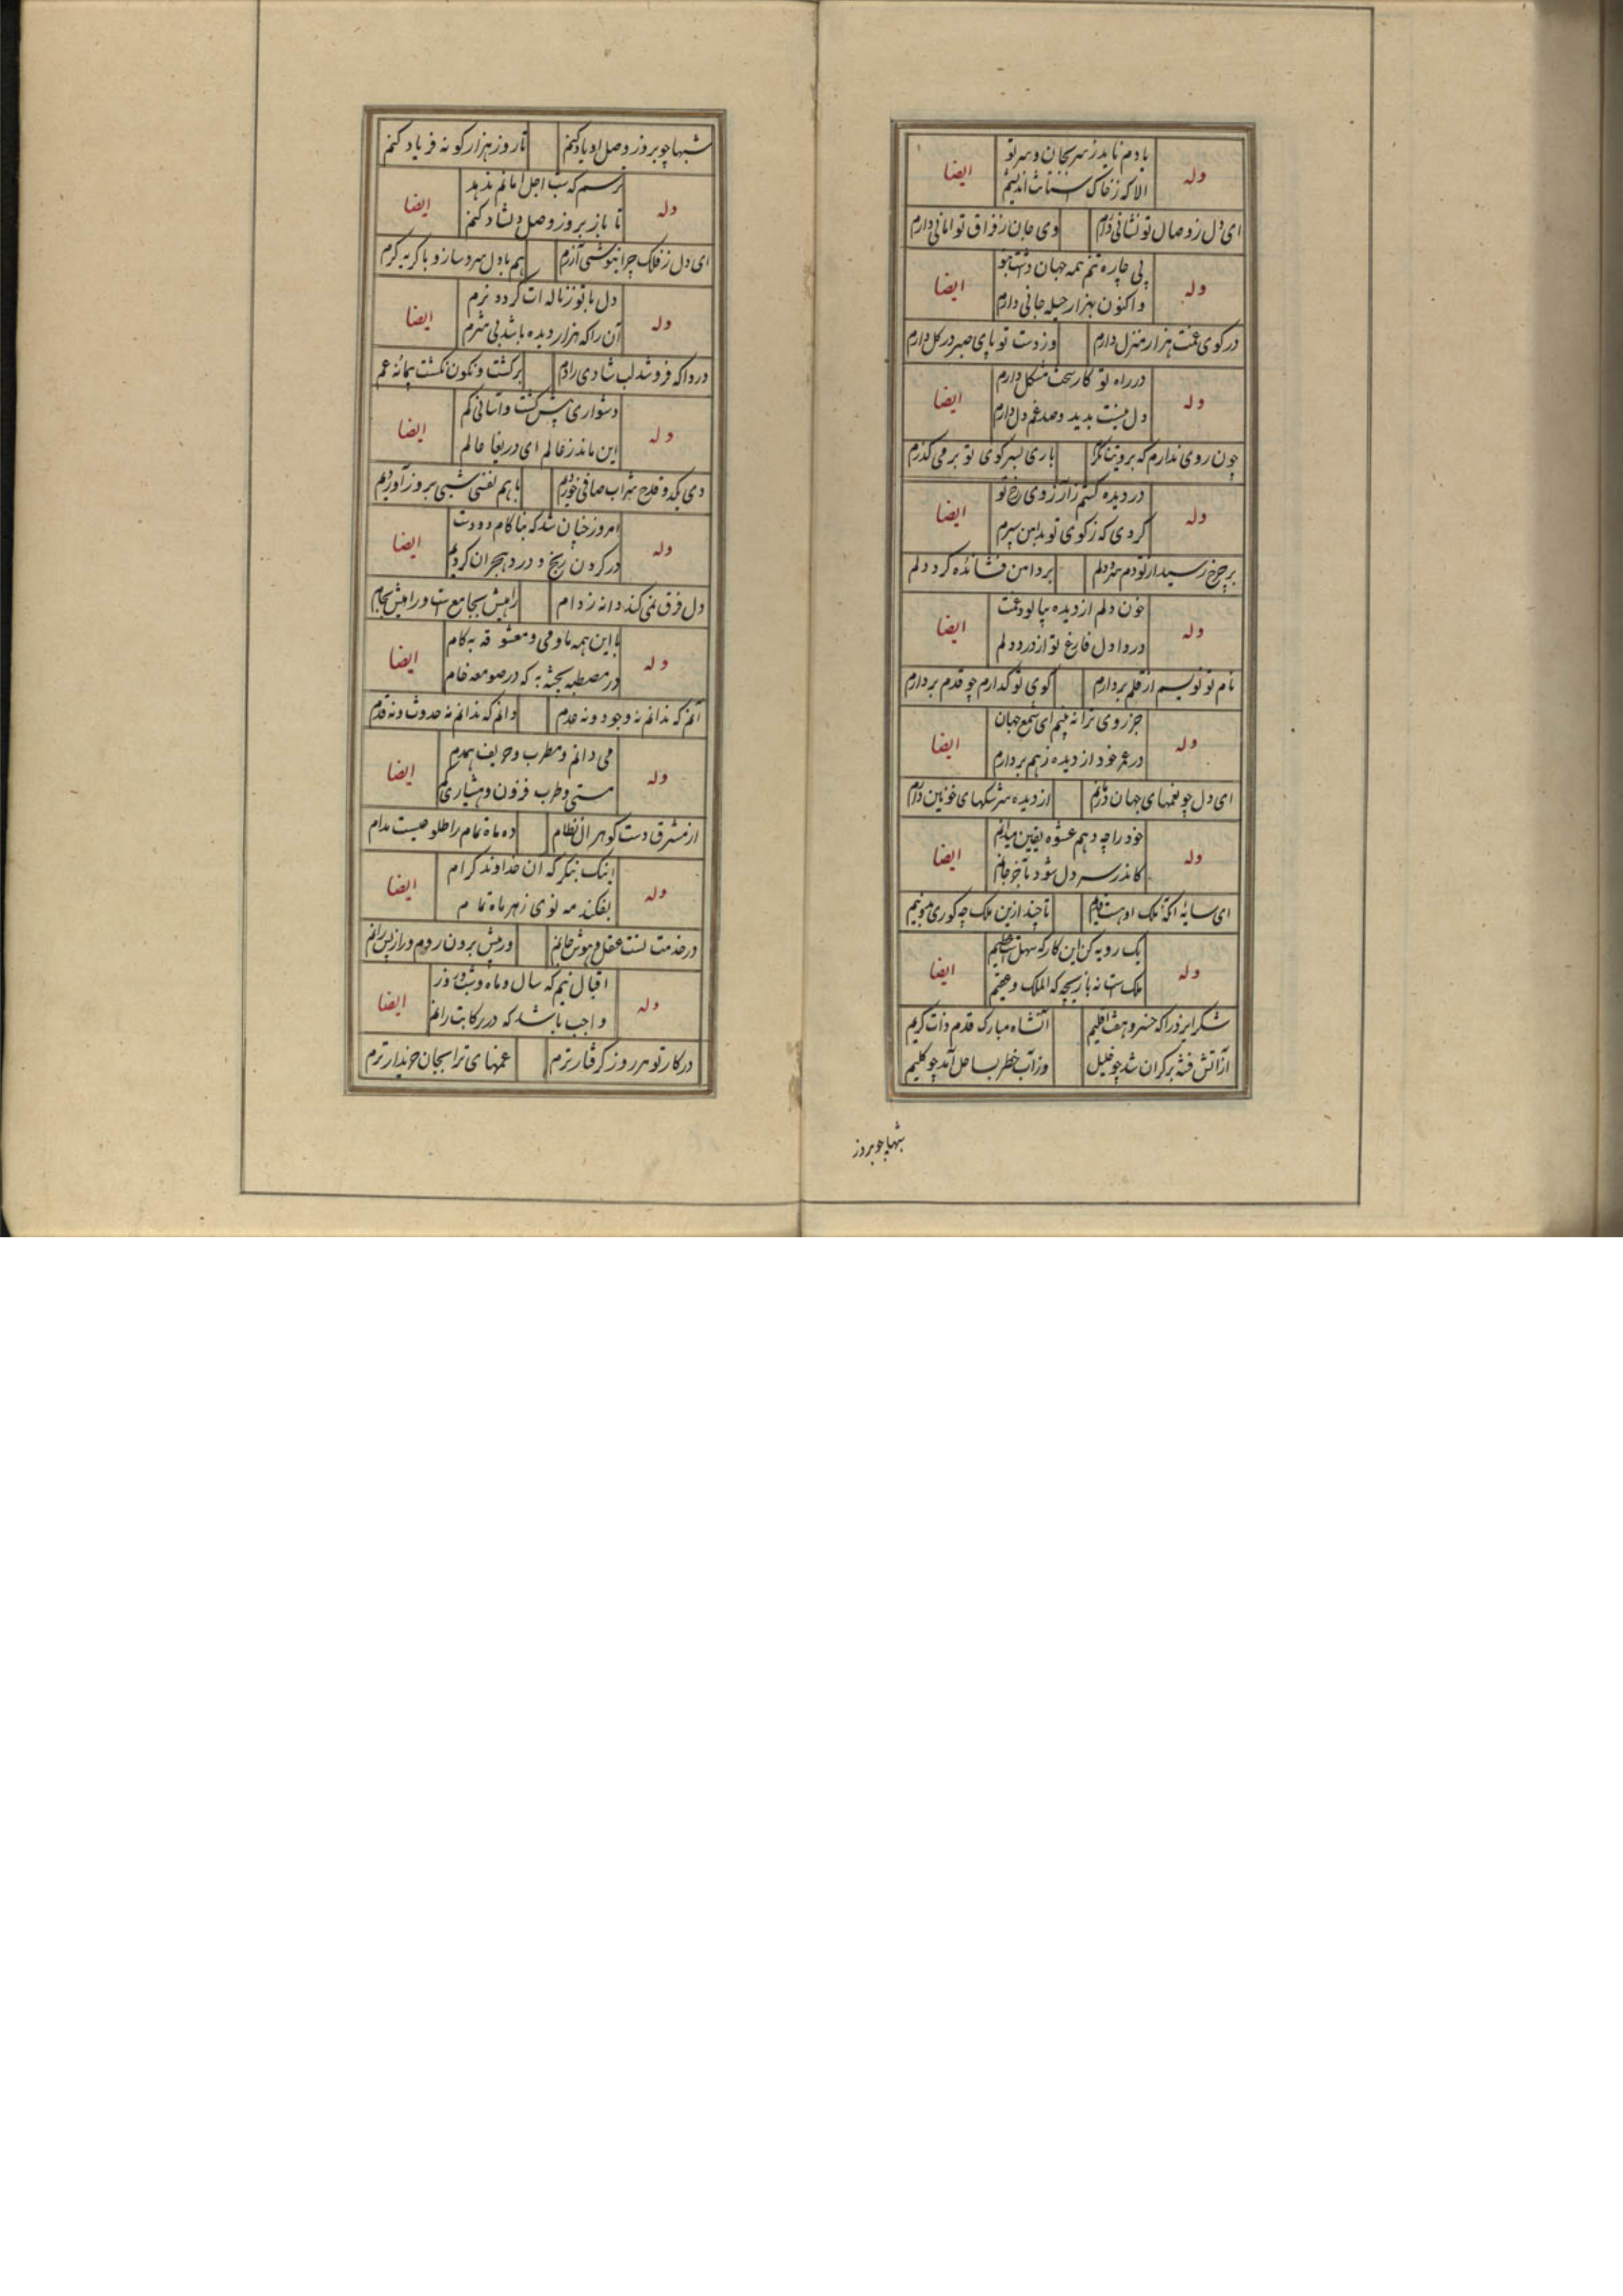 یادم ناید ز سر بجان و سر تو
وله
ایضا
الا که ز خاک
ای دل ز وصال تو نشانی دارم وی جان ز فراق تو امانی دارم
بی چاره تنم همه جهان داشت بتو
وله
ایضا
واکنون بهزار حیله جانی دارم
در کوی غمت هزار منزل دارم وز دست تو پای صبر در گل دارم
در راه تو کار سخت مشکل دارم
وله
ایضا
دل نیست پدید و صد غم دل دارم
چون روی ندارم که برویت نگرم باری بسر کوی تو بر می گذرم
در دیده کشم ز آرزوی رخ تو
وله
ایضا
گردی که ز کوی تو بدامن سپرم
بر چرخ رسید از تو دم سرد دلم بر دامن تو فشانده گرد دلم
خون دلم از دیده بپالود غمت
وله
ایضا
دردا دل فارغ تو از درد دلم
نام تو نویسم ار قلم بردارم کوی تو گذارم چو قدم بردارم
جز روی ترا نه بینم ای شمع جهان
وله
ایضا
در عمر خود ار دیده ز هم بردارم
ای دل چو غمهای جهان از دیده سرشکهای خونین
خود را چه دهم عشوه یقین میدانم
وله
ایضا
کاندر سر دل شود بآخر جانم
ای سایه آنکه ملک او هست قدیم تا چند ازین ملک چه کوری
یک رویه کن این کار که سهلست سلیم
وله
ایضا
ملک است نه بازیچه که الملک عقیم
شکر ایزد را که خسرو هفت اقلیم آنشاه مبارک قدم ذات کریم
از آتش فتنه بر کران شد چو خلیل وز آب خطر بساحل آمد چو کلیم
شبها چو بروز
شبها چو بروز وصل او یاد کنم تا روز هزار گونه فریاد کنم
ترسم که شب اجل امانم ندهد
وله
ایضا
تا باز بروز وصل دلشاد کنم
ای دل ز فلک چرا نیوشی آزرم هم با دم سرد ساز و با گریه گرم
دل با تو ز ناله ات گردد نرم
وله
ایضا
آن را که هزار دیده باشد بی شرم
دردا که فرو شد لب شادی را دم برگشت و نگون نگشت پیمانه غم
دشواری بیش گشت و آسانی کم
وله
ایضا
این ماند ز عالم ای دریغا عالم
دی یکدو قدح شراب صافی خوردیم با هم نفسی شبی بروز آوردیم
امروز چنان شد که بنا کام دو دست
وله
ایضا
در گردن رنج و درد هجران کردیم
دل فرق نمی کند دانه ز دام راهیش بجامع است و راهیش بجام
با این همه ما و می و معشوقه بکام
وله
ایضا
در مصطبه پخته به که در صومعه خام
آنم که ندانم نه وجود و نه عدم دانم که ندانم نه حدوث و نه قدم
می دانم و مطرب و حریف همدم
وله
ایضا
مستی و طرب فزون و هشیاری کم
از مشرق دست گوهر آل نظام ده ماه تمام را طلوعیست مدام
اینک بنگر که آن خداوند کرام
وله
ایضا
بفکند مه نوی ز هر ماه تمام
در خدمت تست عقل و هوش جانم در پیش برون روم ور از پس رانم
اقبال نیم که سال و ماه و شب و روز
وله
ایضا
واجب باشد که در رکابت رانم
در کار تو هر روز گرفتارترم غمهای ترا بجان خریدارترم